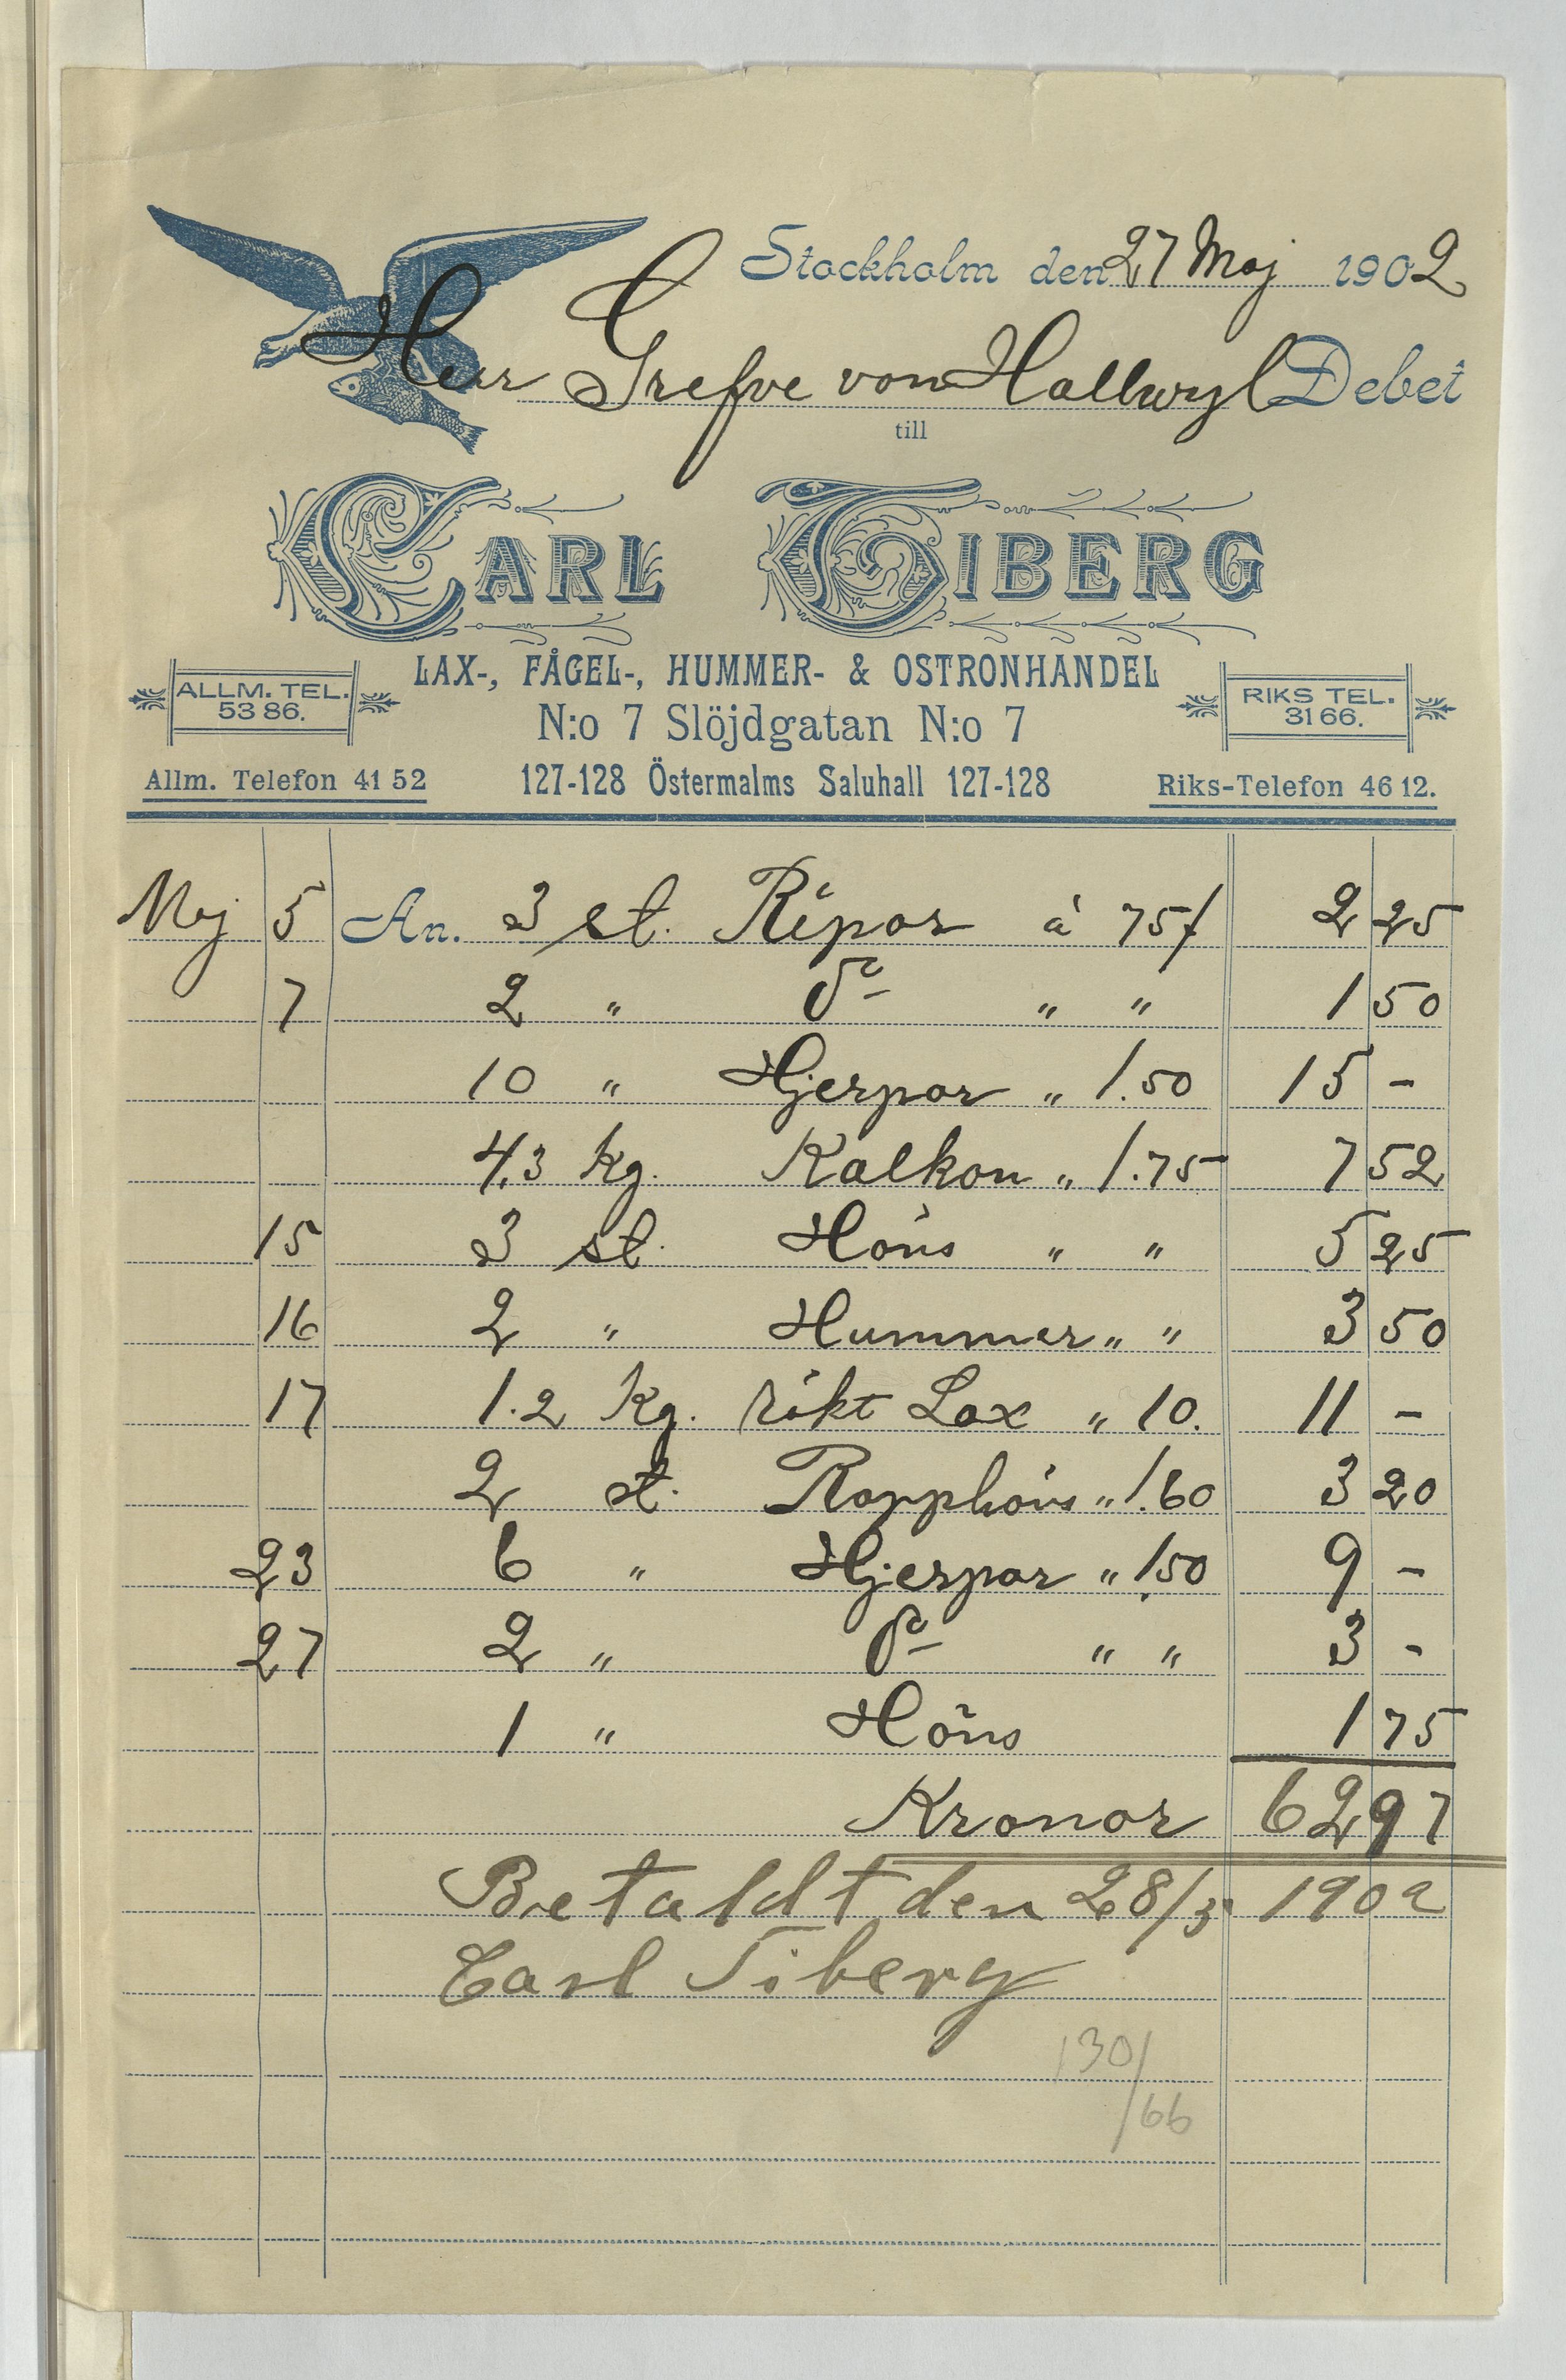 Stockholm den 27 Maj 1902
Herr Grefve von Hallwyl Debet
till
CARL TIBERG
LAX-, FÅGEL-, HUMMER- & OSTRONHANDEL
ALLM. TEL. 53 86.
N:o 7 Slöjdgatan N:o 7
RIKS TEL. 31 66.
Allm. Telefon 41 52 127-128 Östermalms Saluhall 127-128 Riks-Telefon 46 12.
Maj 5 An. 3 st. Ripor à 75/ 2 25
7 2 " Do " " 1 50
10 " Hjerpar " 1.50 15 -
4,3 kg. Kalkon " 1.75 7 52
15 3 st. Höns " " 5 25
16 2 " Hummer " " 3 50
17 1.2 kg. rökt Lax " 10. 11 -
2 st. Rapphöns " 1.60 3 20
23 6 " Hjerpar " 1.50 9 -
27 2 " Do " " 3 -
1 " Höns 1 75
Kronor 62 97
Betaldt den 28/5 1902
Carl Tiberg
130/
/66